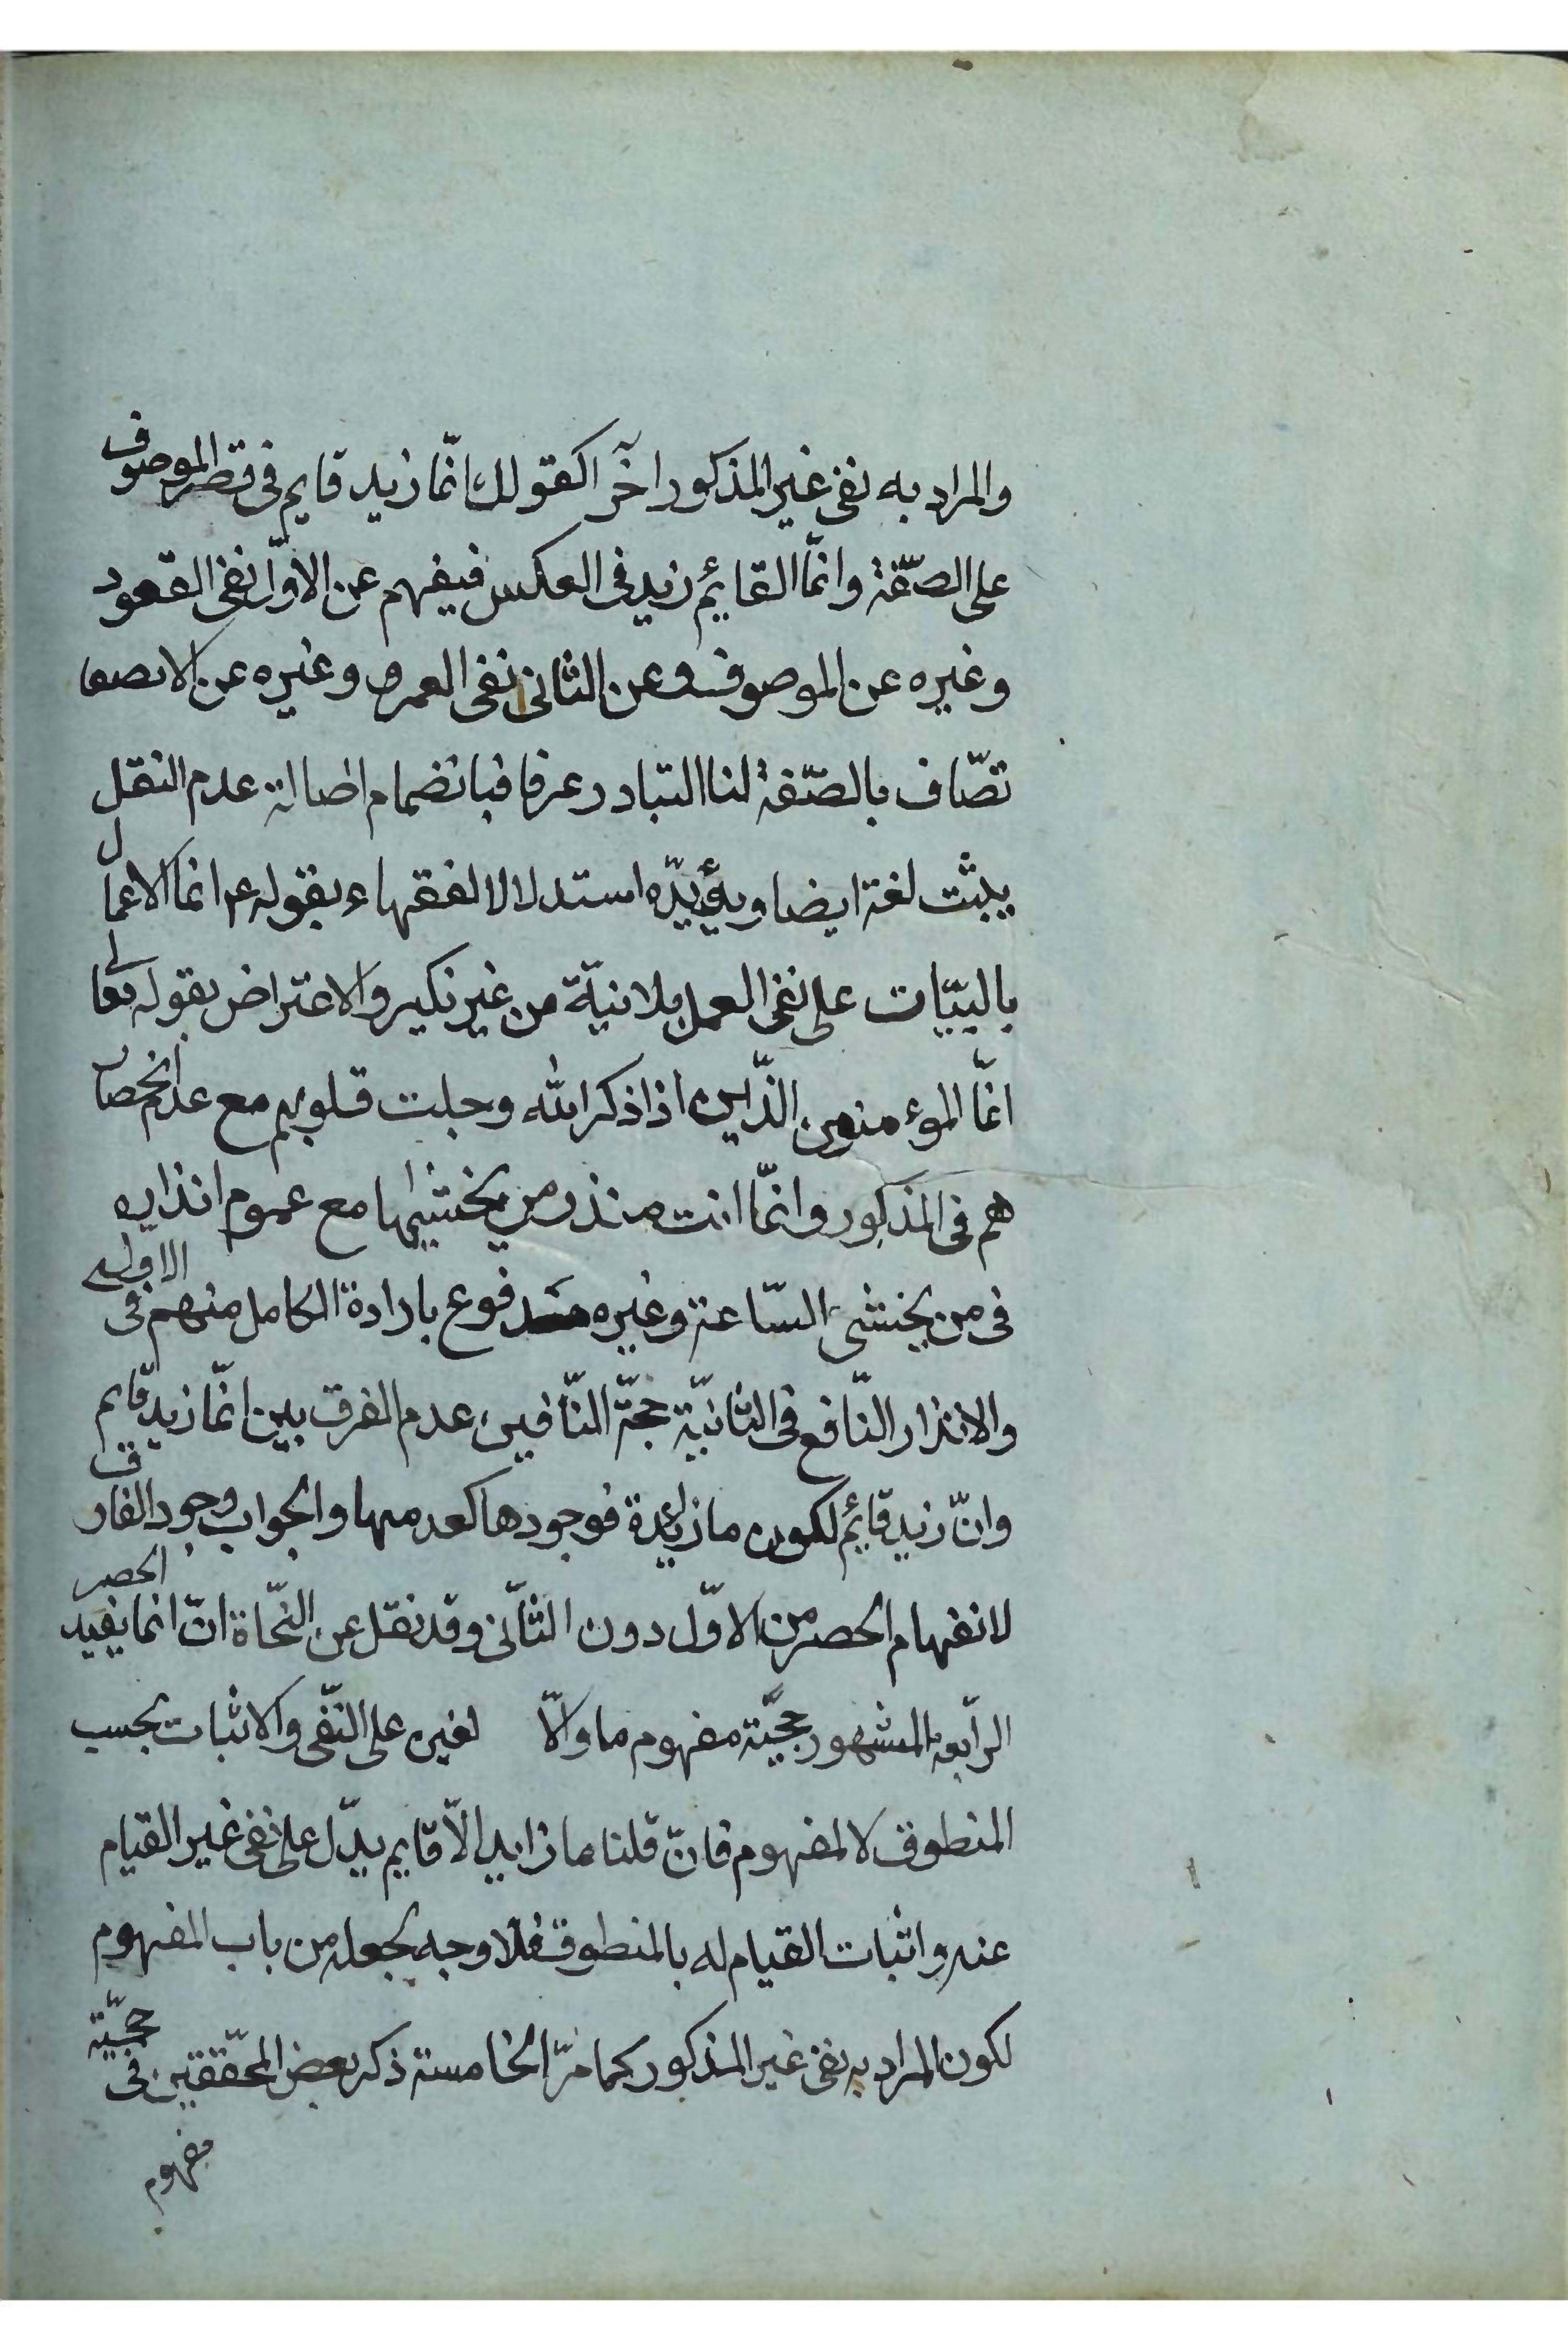 والمراد به نفی غیر المذکور اخرا کقولك انّما زید قایم فی قصر الموصوف
علی الصّفة وانّما القائم زید فی العکس فیفهم عن الاوّل نفی القعود
وغیره عن الموصوف وعن الثانی نفی العمرو وغیره عن الاتصا
تصّاف بالصّفة لنا التبادر عرفا فبانضمام اصالة عدم النقل
یثبت لغة ایضا ویؤیّده استدلال الفقهاء بقوله ع انما الاعمال
بالنیّات علی نفی العمل بلا نیّة من غیر نکیر والاعتراض بقوله تعالی
انمّا المؤمنون الذّین اذا ذکر الله وجلت قلوبهم مع عدم انحصار
هم فی المذکور وانمّا انت منذر من یخشیها مع عموم انذاره
فی من یخشی السّاعة وغیره مدفوع بارادة الکامل منهم فی الاولی
والانذار النّافع فی الثانیّة حجّة النّافین عدم الفرق بین انمّا زید قایم
وانّ زید قائم لکون ما زائدة فوجودها کعدمها والجواب وجود الفارق
لانفهام الحصر من الاوّل دون الثّانی وقد نقل عن النّحاة انّ انما یفید الحصر
الرّابعة المشهور حجیّة مفهوم ما والّا لغیره علی النّفی والاثبات بحسب
المنطوق لا المفهوم فانّ قلنا ما زاید الّا قایم یدّل علی نفی غیر القیام
عنه واثبات القیام له بالمنطوق فلا وجه لجعله من باب المفهوم
لکون المراد به نفی غیر المذکور کما مرّ الخامسة ذکر بعض المحقّقین فی حجیّة
مفهوم